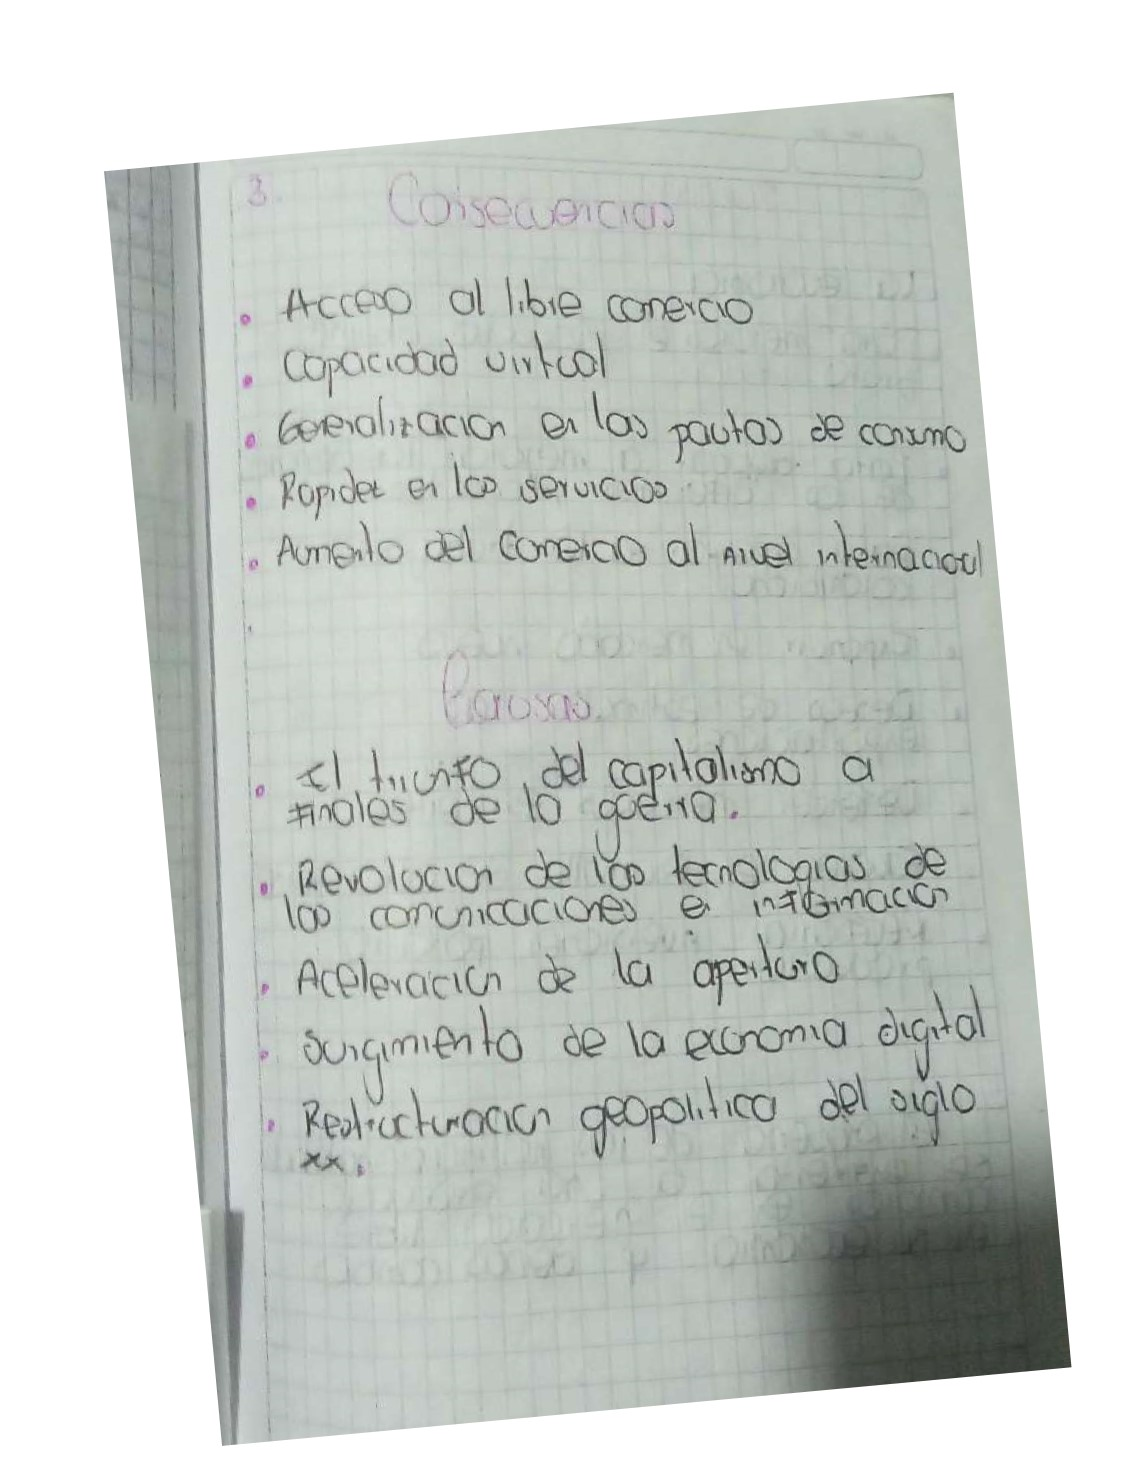 3. Consecuencias
• Acceso al libre comercio
• Capacidad virtual
• Generalización en las pautas de consumo
• Rapidez en los servicios
• Aumento del comercio al nivel internacional
Causas
• El triunfo del capitalismo a
finales de la guerra.
• Revolucion de las tecnologias de
las comunicaciones e información
• Aceleración de la apertura
• Surgimiento de la economia digital
• Restructuración geopolitica del siglo
xx.